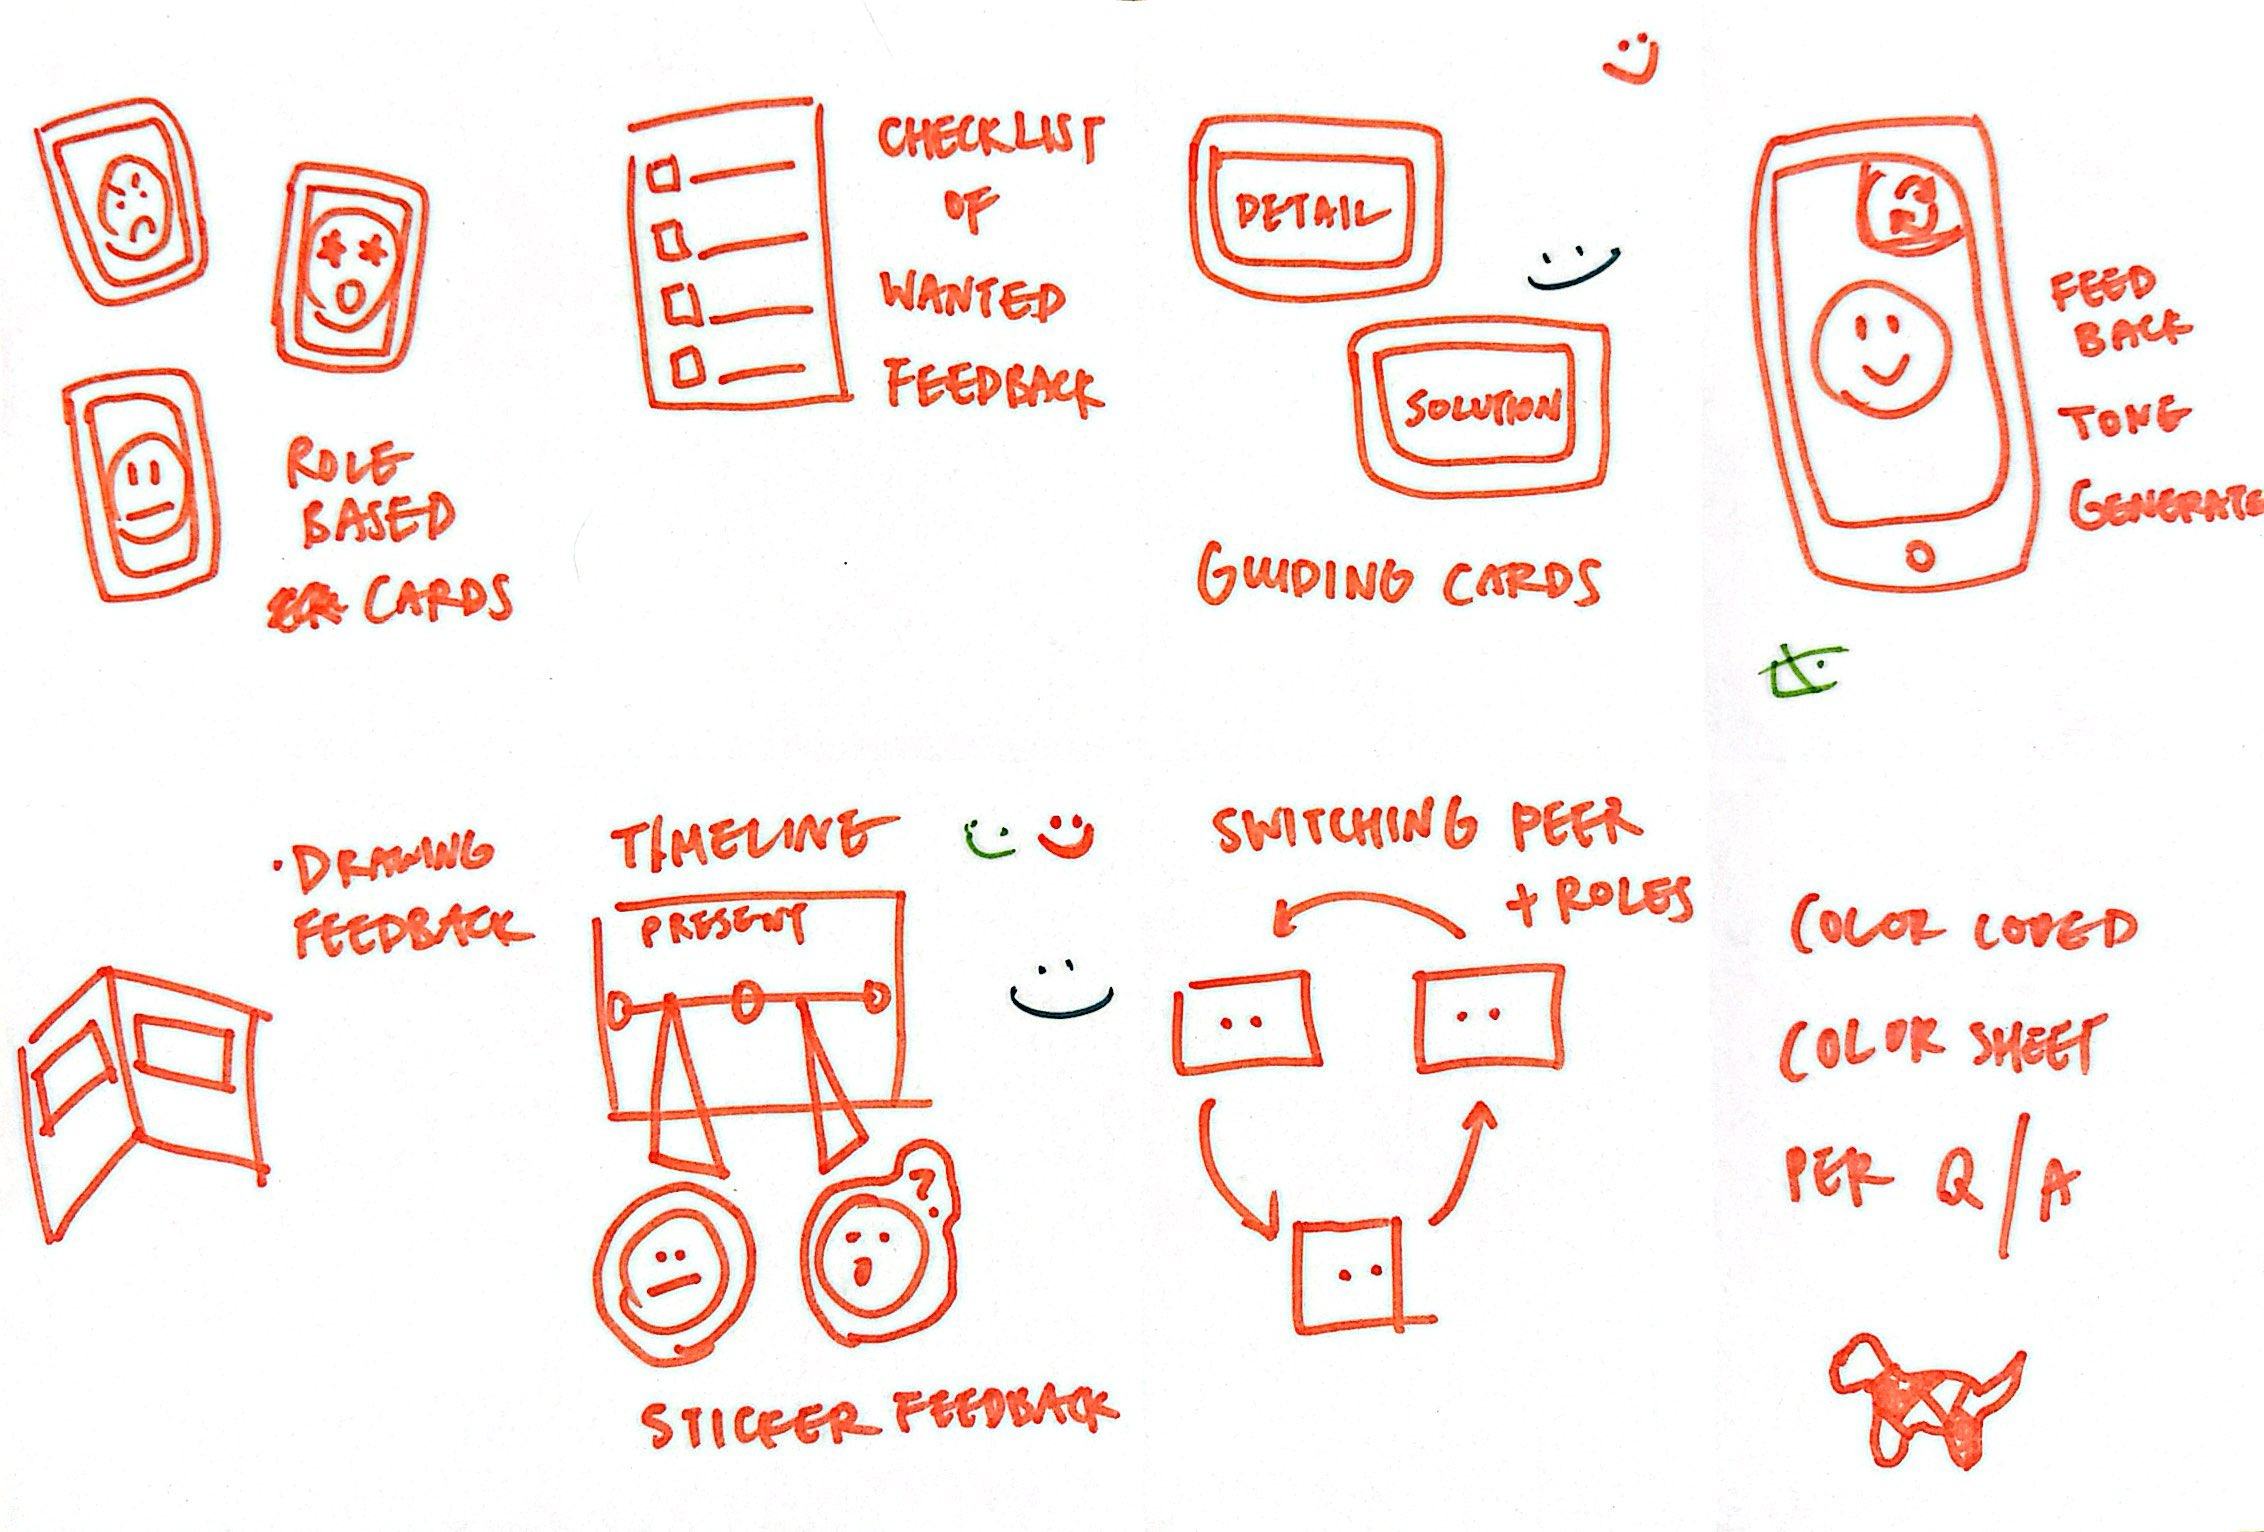 ROLE
BASED
CARDS
CHECKLIST
OF
WANTED
FEEDBACK
DETAIL
SOLUTION
GUIDING CARDS
FEED
BACK
TONE
GENERATE
• DRAWING
FEEDBACK
TIMELINE
PRESENT
?
STICKER FEEDBACK
SWITCHING PEER
+ ROLES
COLOR CODED
COLOR SHEET
PER Q/A